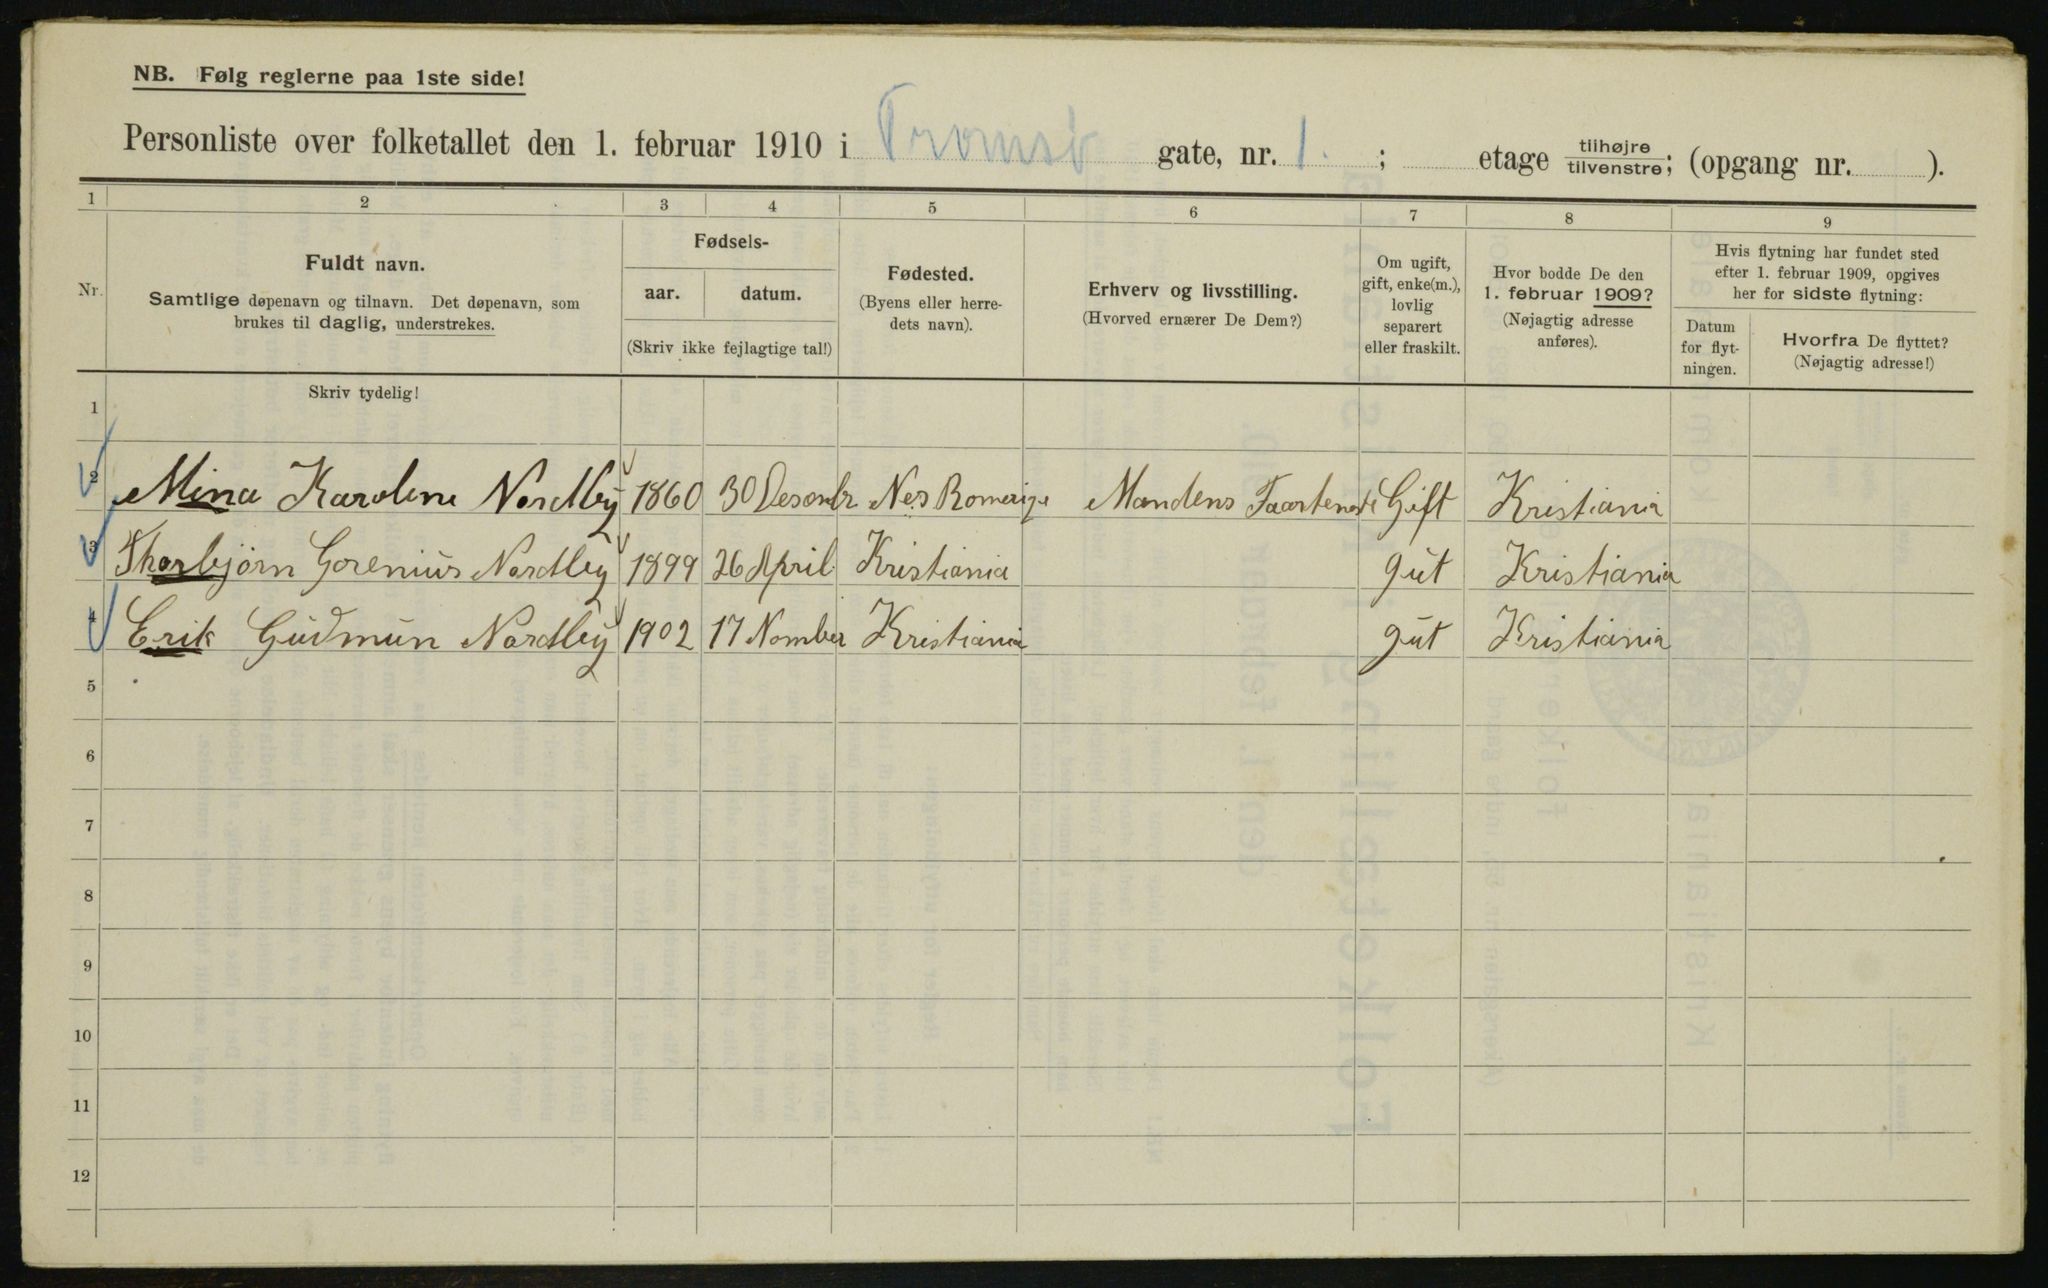 NB. Følg reglerne paa 1ste side!
Personliste over folketallet den 1. februar 1910 i Tromsø gate, nr. 1. ; etage tilhøjre/tilvenstre; (opgang nr. ).
1 2 3 4 5 6 7 8 9
Nr.
Fuldt navn.
Samtlige døpenavn og tilnavn. Det døpenavn, som
brukes til daglig, understrekes.
Fødsels-
aar. datum.
(Skriv ikke fejlagtige tal!)
Fødested.
(Byens eller herre-
dets navn).
Erhverv og livsstilling.
(Hvorved ernærer De Dem?)
Om ugift,
gift, enke(m.),
lovlig
separert
eller fraskilt.
Hvor bodde De den
1. februar 1909?
(Nøjagtig adresse
anføres).
Hvis flytning har fundet sted
efter 1. februar 1909, opgives
her for sidste flytning:
Datum
for flyt-
ningen.
Hvorfra De flyttet?
(Nøjagtig adresse!)
Skriv tydelig!
1
2 Mina Karoline Nordby 1860 30 Desembr Nes Romerige Mandens Gift Kristiania
3 Thorbjørn Gorenius Nordby 1899 26 April Kristiania gut Kristiania
4 Erik Gudmun Nordby 1902 17 Nomber Kristiania gut Kristiania
5
6
7
8
9
10
11
12